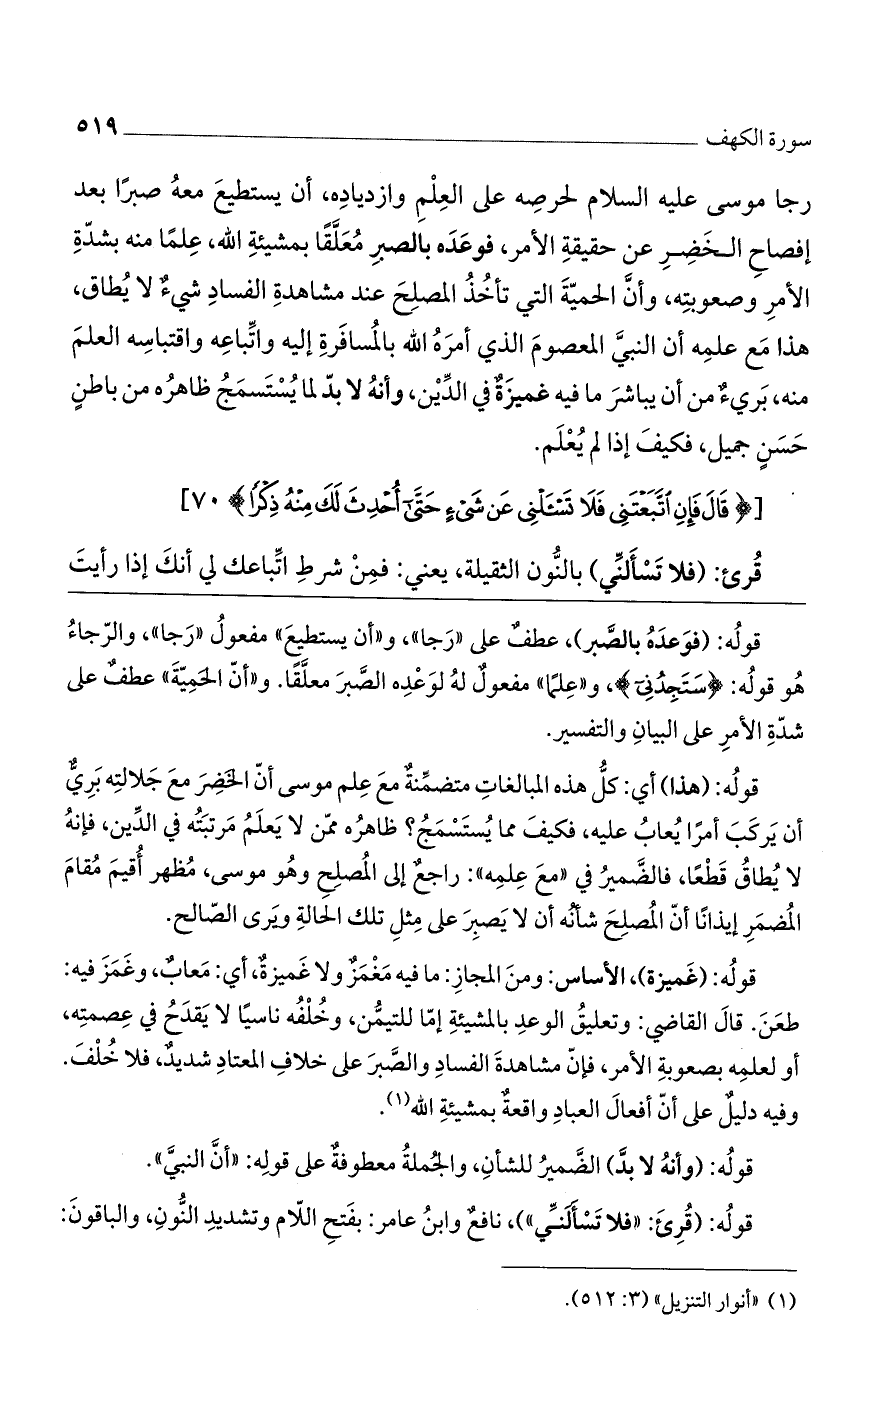 سورة الكهف ٥١٩
رجا موسى عليه السلام لحرصِه على العِلْمِ وازديادِه، أن يستطيعَ معهُ صبرًا بعد
إفصاحِ الـخَضِرِ عن حقيقةِ الأمر، فوعَدَه بالصبرِ مُعَلَّقًا بمشيئةِ الله، عِلمًا منه بشدّةِ
الأمرِ وصعوبتِه، وأنَّ الحميّةَ التي تأخُذُ المصلِحَ عند مشاهدةِ الفسادِ شيءٌ لا يُطاق،
هذا مَع علمِه أن النبيَّ المعصومَ الذي أمرَهُ الله بالمُسافَرةِ إليه واتِّباعِه واقتباسِه العلمَ
منه، بَريءٌ من أن يباشرَ ما فيه غميزَةٌ في الدِّيْن، وأنهُ لا بدّ لما يُسْتَسمَجُ ظاهرُه من باطنٍ
حَسَنٍ جميل، فكيفَ إذا لم يُعْلَم.
[﴿قَالَ فَإِنِ ٱتَّبَعْتَنِى فَلَا تَسْـَٔلْنِى عَن شَىْءٍ حَتَّىٰٓ أُحْدِثَ لَكَ مِنْهُ ذِكْرًا﴾ ٧٠]
قُرئ: (فلا تَسْأَلنِّي) بالنُّون الثقيلة، يعني: فمِنْ شرطِ اتِّباعك لي أنكَ إذا رأيتَ
قولُه: (فوَعَدَهُ بالصَّبر)، عطفٌ على «رَجا»، و«أن يستطيعَ» مفعولُ «رَجا»، والرّجاءُ
هُو قولُه: ﴿سَتَجِدُنِىٓ﴾، و«عِلمًا» مفعولٌ لهُ لوَعْدِه الصَّبرَ معلَّقًا. و«أنّ الحَمِيّةَ» عطفٌ على
شدّةِ الأمرِ على البيانِ والتفسير.
قولُه: (هذا) أي: كلُّ هذه المبالغاتِ متضمِّنةٌ معَ عِلم موسى أنّ الخَضِرَ معَ جَلالتِه بَريٌّ
أن يَركَبَ أمرًا يُعابُ عليه، فكيفَ مما يُستَسْمَجُ؟ ظاهرُه ممّن لا يَعلَمُ مَرتبَتُه في الدِّين، فإنهُ
لا يُطاقُ قَطْعًا، فالضَّميرُ في «معَ عِلمِه»: راجعٌ إلى المُصلِحِ وهُو موسى، مُظهر أُقيمَ مُقامَ
المُضمَرِ إيذانًا أنّ المُصلِحَ شأنُه أن لا يَصبِرَ على مِثلِ تلك الحالةِ ويَرى الصّالح.
قولُه: (غَميزة)، الأساس: ومنَ المجاز: ما فيه مَغْمَزٌ ولا غَميزةٌ، أي: مَعابٌ، وغَمَزَ فيه:
طعَنَ. قالَ القاضي: وتعليقُ الوعدِ بالمشيئةِ إمّا للتيمُّن، وخُلْفُه ناسيًا لا يَقدَحُ في عِصمتِه،
أو لعلمِه بصعوبةِ الأمر، فإنّ مشاهدةَ الفسادِ والصَّبرَ على خلافِ المعتادِ شديدٌ، فلا خُلْفَ.
وفيه دليلٌ على أنّ أفعالَ العبادِ واقعةٌ بمشيئةِ الله(١).
قولُه: (وأنهُ لا بدَّ) الضَّميرُ للشأنِ، والجُملةُ معطوفةٌ على قولِه: «أنَّ النبيَّ».
قولُه: (قُرِئَ: «فلا تَسْأَلَنِّي»)، نافعٌ وابنُ عامر: بفَتحِ اللّام وتشديدِ النُّونِ، والباقونَ:
(١) «أنوار التنزيل» (٣: ٥١٢).